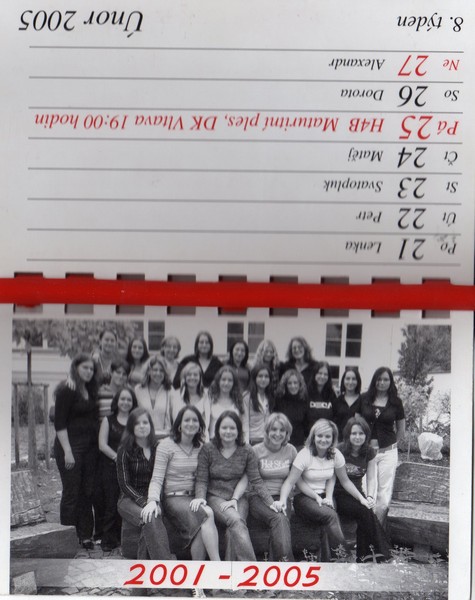 Po 21 Lenka
Út 22 Petr
St 23 Svatopluk
Čt 24 Matěj
Pá 25 H4B Maturitní ples, DK Vltava 19:00 hodin
So 26 Dorota
Ne 27 Alexandr
8. týden Únor 2005
2001 - 2005